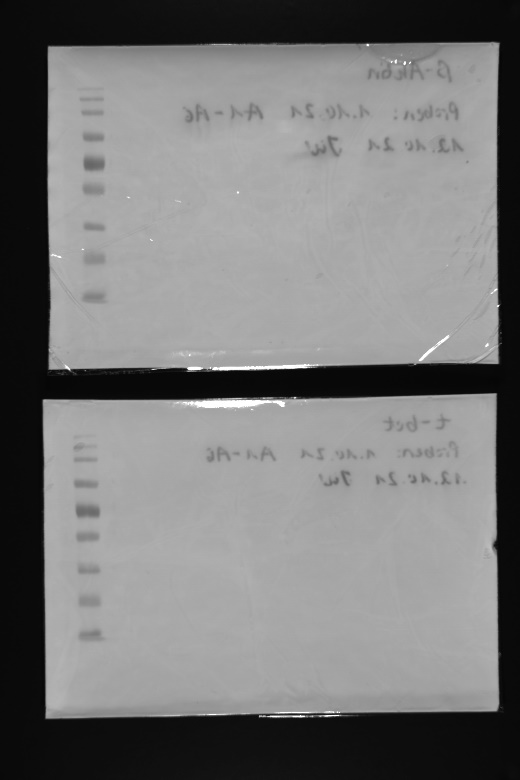 β-Aktin
Proben: 1.10.21 A1-A6
12.10.21 JW
t-bet
Proben: 1.10.21 A1-A6
12.10.21 JW